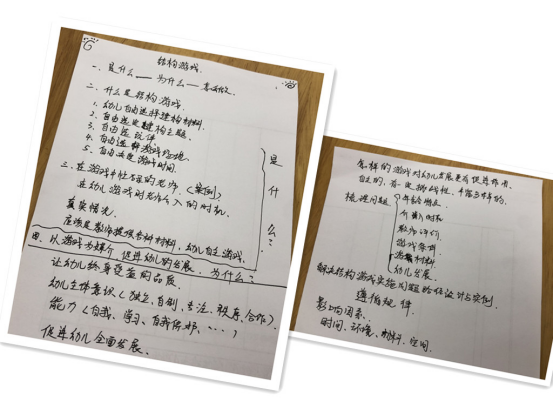 结构游戏.
一. 是什么——为什么——怎么做.
二. 什么是结构游戏.
1. 幼儿自由选择建构材料.
2. 自由选定建构主题.
3. 自由选玩伴.
4. 自由选择游戏环境.
5. 自由决定游戏时间.
是什么?
三. 在游戏中忙碌的老师. (案例)
在幼儿游戏时老师介入的时机.
真实情况.
应该是教师提供各种材料, 幼儿自主游戏.
四. 以游戏为媒介, 促进幼儿的发展. 为什么?
让幼儿终身受益的品质.
幼儿主体意识 (独立, 自制, 专注, 秩序, 合作).
能力 (自我, 学习, 自我保护, ……)
促进幼儿全面发展.
怎样的游戏对幼儿发展更有促进作用.
自主的, 有一定挑战性, 丰富多样的.
梳理问题
年龄特点
介入时机
教师评价.
游戏条件
游戏材料
幼儿发展.
解决结构游戏实施问题的设计与实例.
遵循规律.
影响因素.
时间. 环境. 材料. 空间.